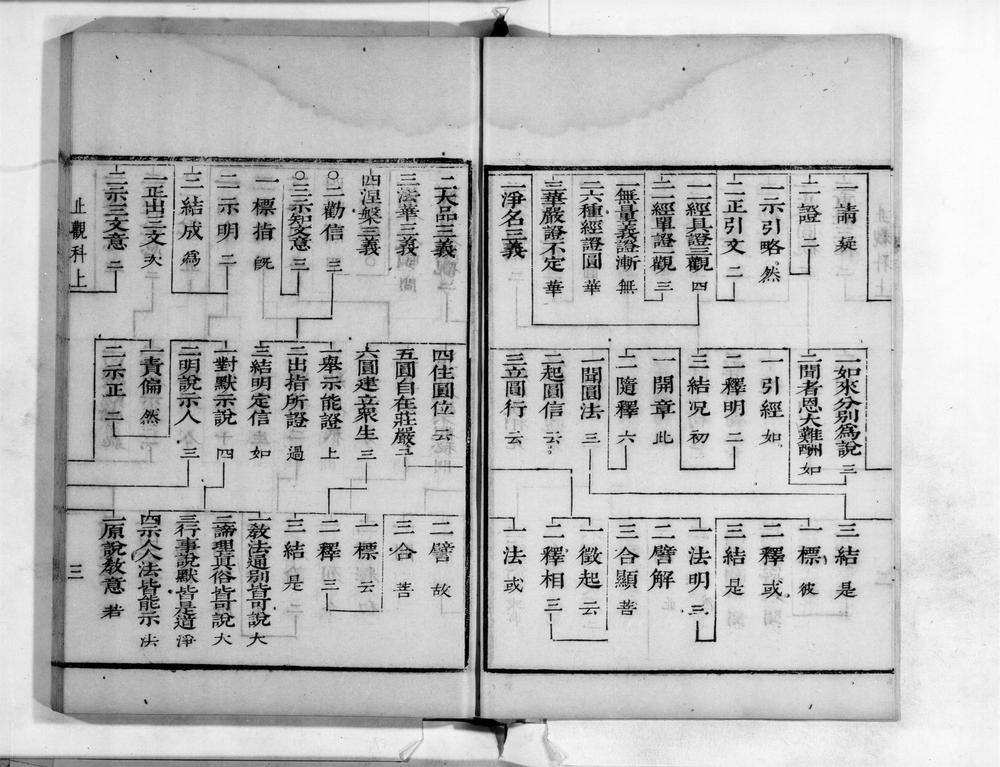 一請 疑
二證 二
一示引略 然
二正引文 二
一經具證三觀 四
二經單證一觀 三
一無量義證漸 無
二六種經證圓 華
三華嚴證不定 華
一淨名三義
一如來分別爲說 三
二聞者恩大難酬 如
一引經 如
二釋明 二
三結況 初
一開章 此
二隨釋 六
一聞圓法 三
二起圓信 云
三立圓行 云
三結 是
一標 彼
二釋 或
三結 是
一法明 三
二譬解
三合顯 菩
一徵起 云
二釋相 三
一法 或
二大品三義
三法華三義
四涅槃三義
二勸信 三
三示知文意 三
一標指 旣
二示明 二
三結成 爲
一正出三文 次
二示三文意 二
止觀科上
四住圓位 云
五圓自在莊嚴 二
六圓建立衆生 三
一舉示能證 上
二出指所證 過
三結明定信 如
一對默示說 四
二明說示人 三
一責偏 然
二示正 二
二譬 故
三合 菩
一標 云
二釋 三
三結 是
一敎法通別皆可說 大
二諦理眞俗皆可說 大
三行事說默皆是道 淨
四示人人法皆能示 法
一原說敎意 若
三